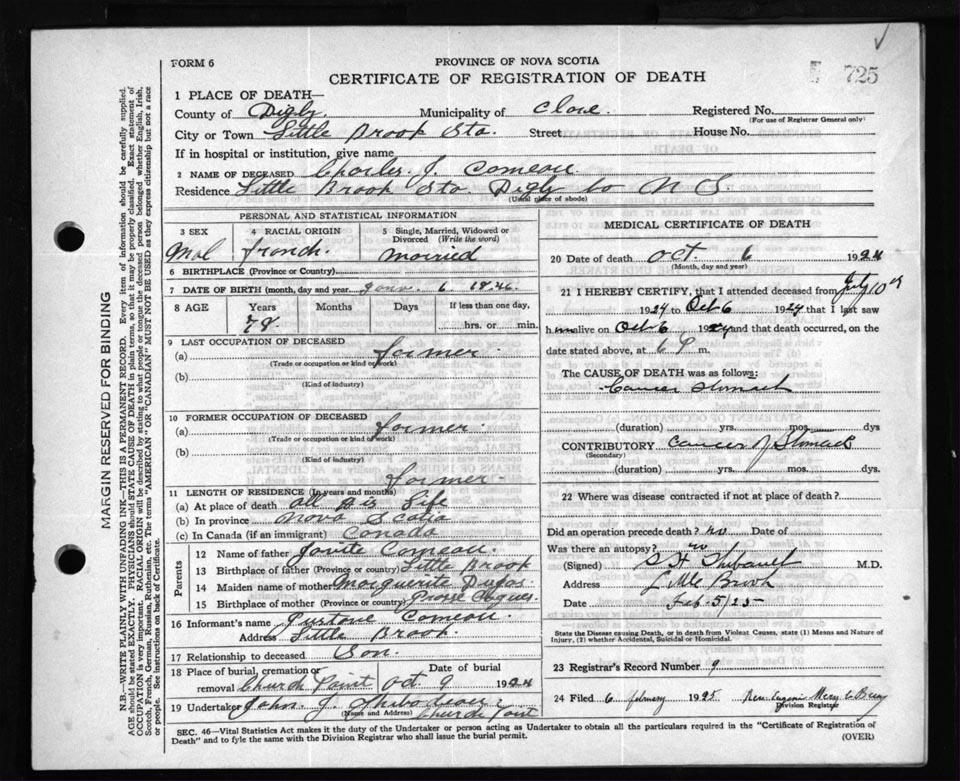 FORM 6
PROVINCE OF NOVA SCOTIA
CERTIFICATE OF REGISTRATION OF DEATH
725
1 PLACE OF DEATH—
County of Digby. Municipality of Clare
Registered No.
(For use of Registrar General only)
City or Town Little Brook Sta. Street House No.
If in hospital or institution, give name
2 NAME OF DECEASED Charles. J. Comeau.
Residence Little Brook Sta Digby Co N S.
(Usual place of abode)
PERSONAL AND STATISTICAL INFORMATION
3 SEX
Mal
4 RACIAL ORIGIN
french.
5 Single, Married, Widowed or Divorced (Write the word)
Married
6 BIRTHPLACE (Province or Country)
7 DATE OF BIRTH (month, day and year 6. 1846.
8 AGE
Years
78.
Months
Days
If less than one day,
hrs. or min.
9 LAST OCCUPATION OF DECEASED
(a) farmer.
(Trade or occupation or kind of work)
(b)
(Kind of industry)
10 FORMER OCCUPATION OF DECEASED
(a) farmer.
(Trade or occupation or kind of work)
(b)
(Kind of industry)
farmer.
11 LENGTH OF RESIDENCE (In years and months)
(a) At place of death all Life
(b) In province Nova Scotia
(c) In Canada (if an immigrant) Canada
Parents
12 Name of father Comeau.
13 Birthplace of father (Province or country) Little Brook
14 Maiden name of mother Marguerite Dugas.
15 Birthplace of mother (Province or country)
16 Informant's name Comeau.
Address Little Brook.
17 Relationship to deceased Son.
18 Place of burial, cremation or
removal Church Point
Date of burial
Oct 9 1924
19 Undertaker John. J.
(Name and Address) Church Point
MEDICAL CERTIFICATE OF DEATH
20 Date of death Oct. 6 1924
(Month, day and year)
21 I HEREBY CERTIFY, that I attended deceased from July 10th
1924 to Oct 6 1924 that I last saw
him alive on Oct 6 1924 and that death occurred, on the
date stated above, at 6 P m.
The CAUSE OF DEATH was as follows:
Cancer Stomach
(duration) yrs. mos. dys
CONTRIBUTORY Cancer of Stomach
(Secondary)
(duration) yrs. mos. dys.
22 Where was disease contracted if not at place of death?
Did an operation precede death? no Date of
Was there an autopsy? no
(Signed) Thibault M.D.
Address Little Brook
Date Feb 5/25
State the Disease causing Death, or in death from Violent Causes, state (1) Means and Nature of
Injury, (2) whether Accidental, Suicidal or Homicidal.
23 Registrar's Record Number 9
24 Filed 6 february 1925
Division Registrar
SEC. 46—Vital Statistics Act makes it the duty of the Undertaker or person acting as Undertaker to obtain all the particulars required in the "Certificate of Registration of
Death" and to fyle the same with the Division Registrar who shall issue the burial permit.
(OVER)
MARGIN RESERVED FOR BINDING
N.B.—WRITE PLAINLY WITH UNFADING INK—THIS IS A PERMANENT RECORD. Every item of information should be carefully supplied.
AGE should be stated EXACTLY. PHYSICIANS should STATE CAUSE OF DEATH in plain terms, so that it may be properly classified. Exact statement of
OCCUPATION is very important. RACIAL ORIGIN will be described by stating to what people or tongue the deceased person belonged whether English, Irish,
Scotch, French, German, Russian, Ruthenian, etc. The terms "AMERICAN" or "CANADIAN" MUST NOT BE USED as they express citizenship but not a race
or people. See instructions on back of Certificate.